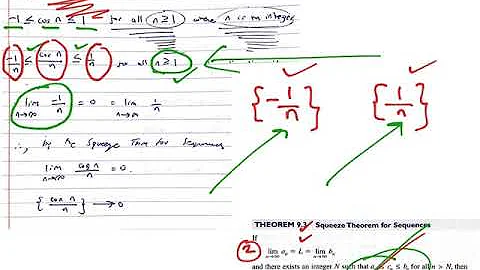 -1 ≤ cos n ≤ 1 for all n ≥ 1 where n is an integer
-1/n ≤ cos n/n ≤ 1/n for all n ≥ 1
lim n→∞ -1/n = 0 = lim n→∞ 1/n
∴, by the Squeeze Thm for Sequences
lim n→∞ cos n/n = 0.
{cos n/n} → 0
{-1/n} {1/n}
THEOREM 9.3 Squeeze Theorem for Sequences
If
2 lim n→∞ aₙ = L = lim n→∞ bₙ
and there exists an integer N such that aₙ ≤ cₙ ≤ bₙ for all n > N, then